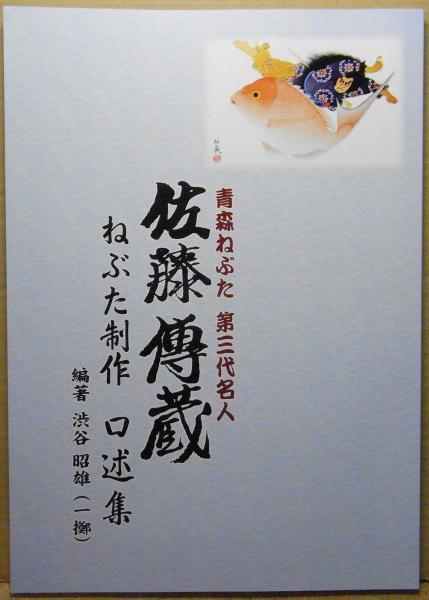 青森ねぶた 第三代名人
佐藤傳蔵
ねぶた制作 口述集
編著 渋谷 昭雄(一擲)